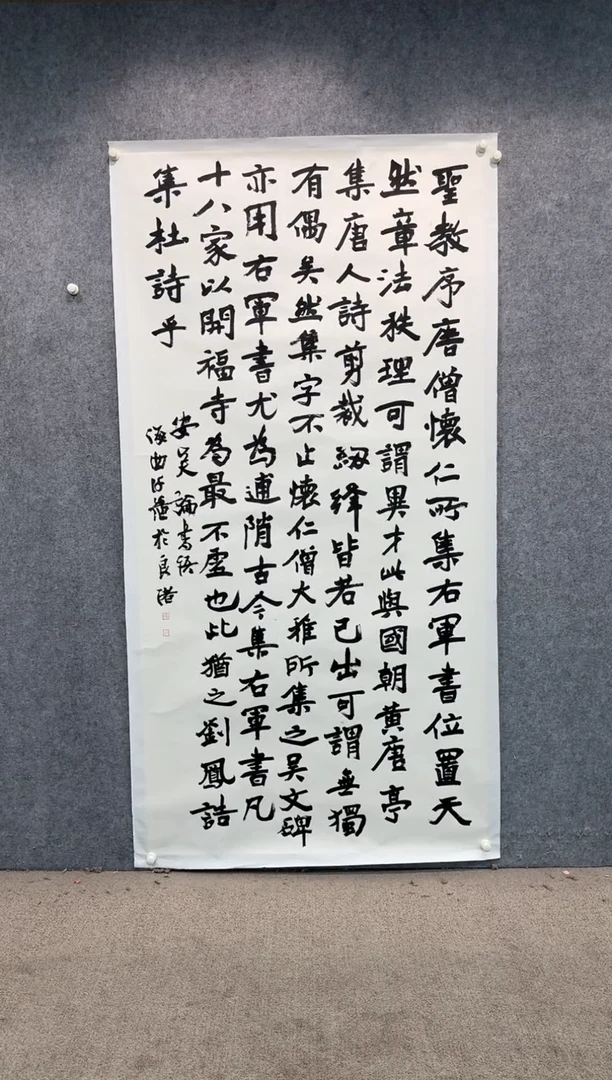 聖教序唐僧懷仁所集右軍書位置天
然章法秩理可謂異才此與國朝黄唐亭
集唐人詩剪裁紉縫皆若己出可謂無獨
有偶矣然集字不止懷仁僧大雅所集之吴文碑
亦用右軍書尤為逋陗古今集右軍書凡
十八家以開福寺為最不虛也此猶之劉鳳誥
集杜詩乎
安吴論書語
海曲於良渚